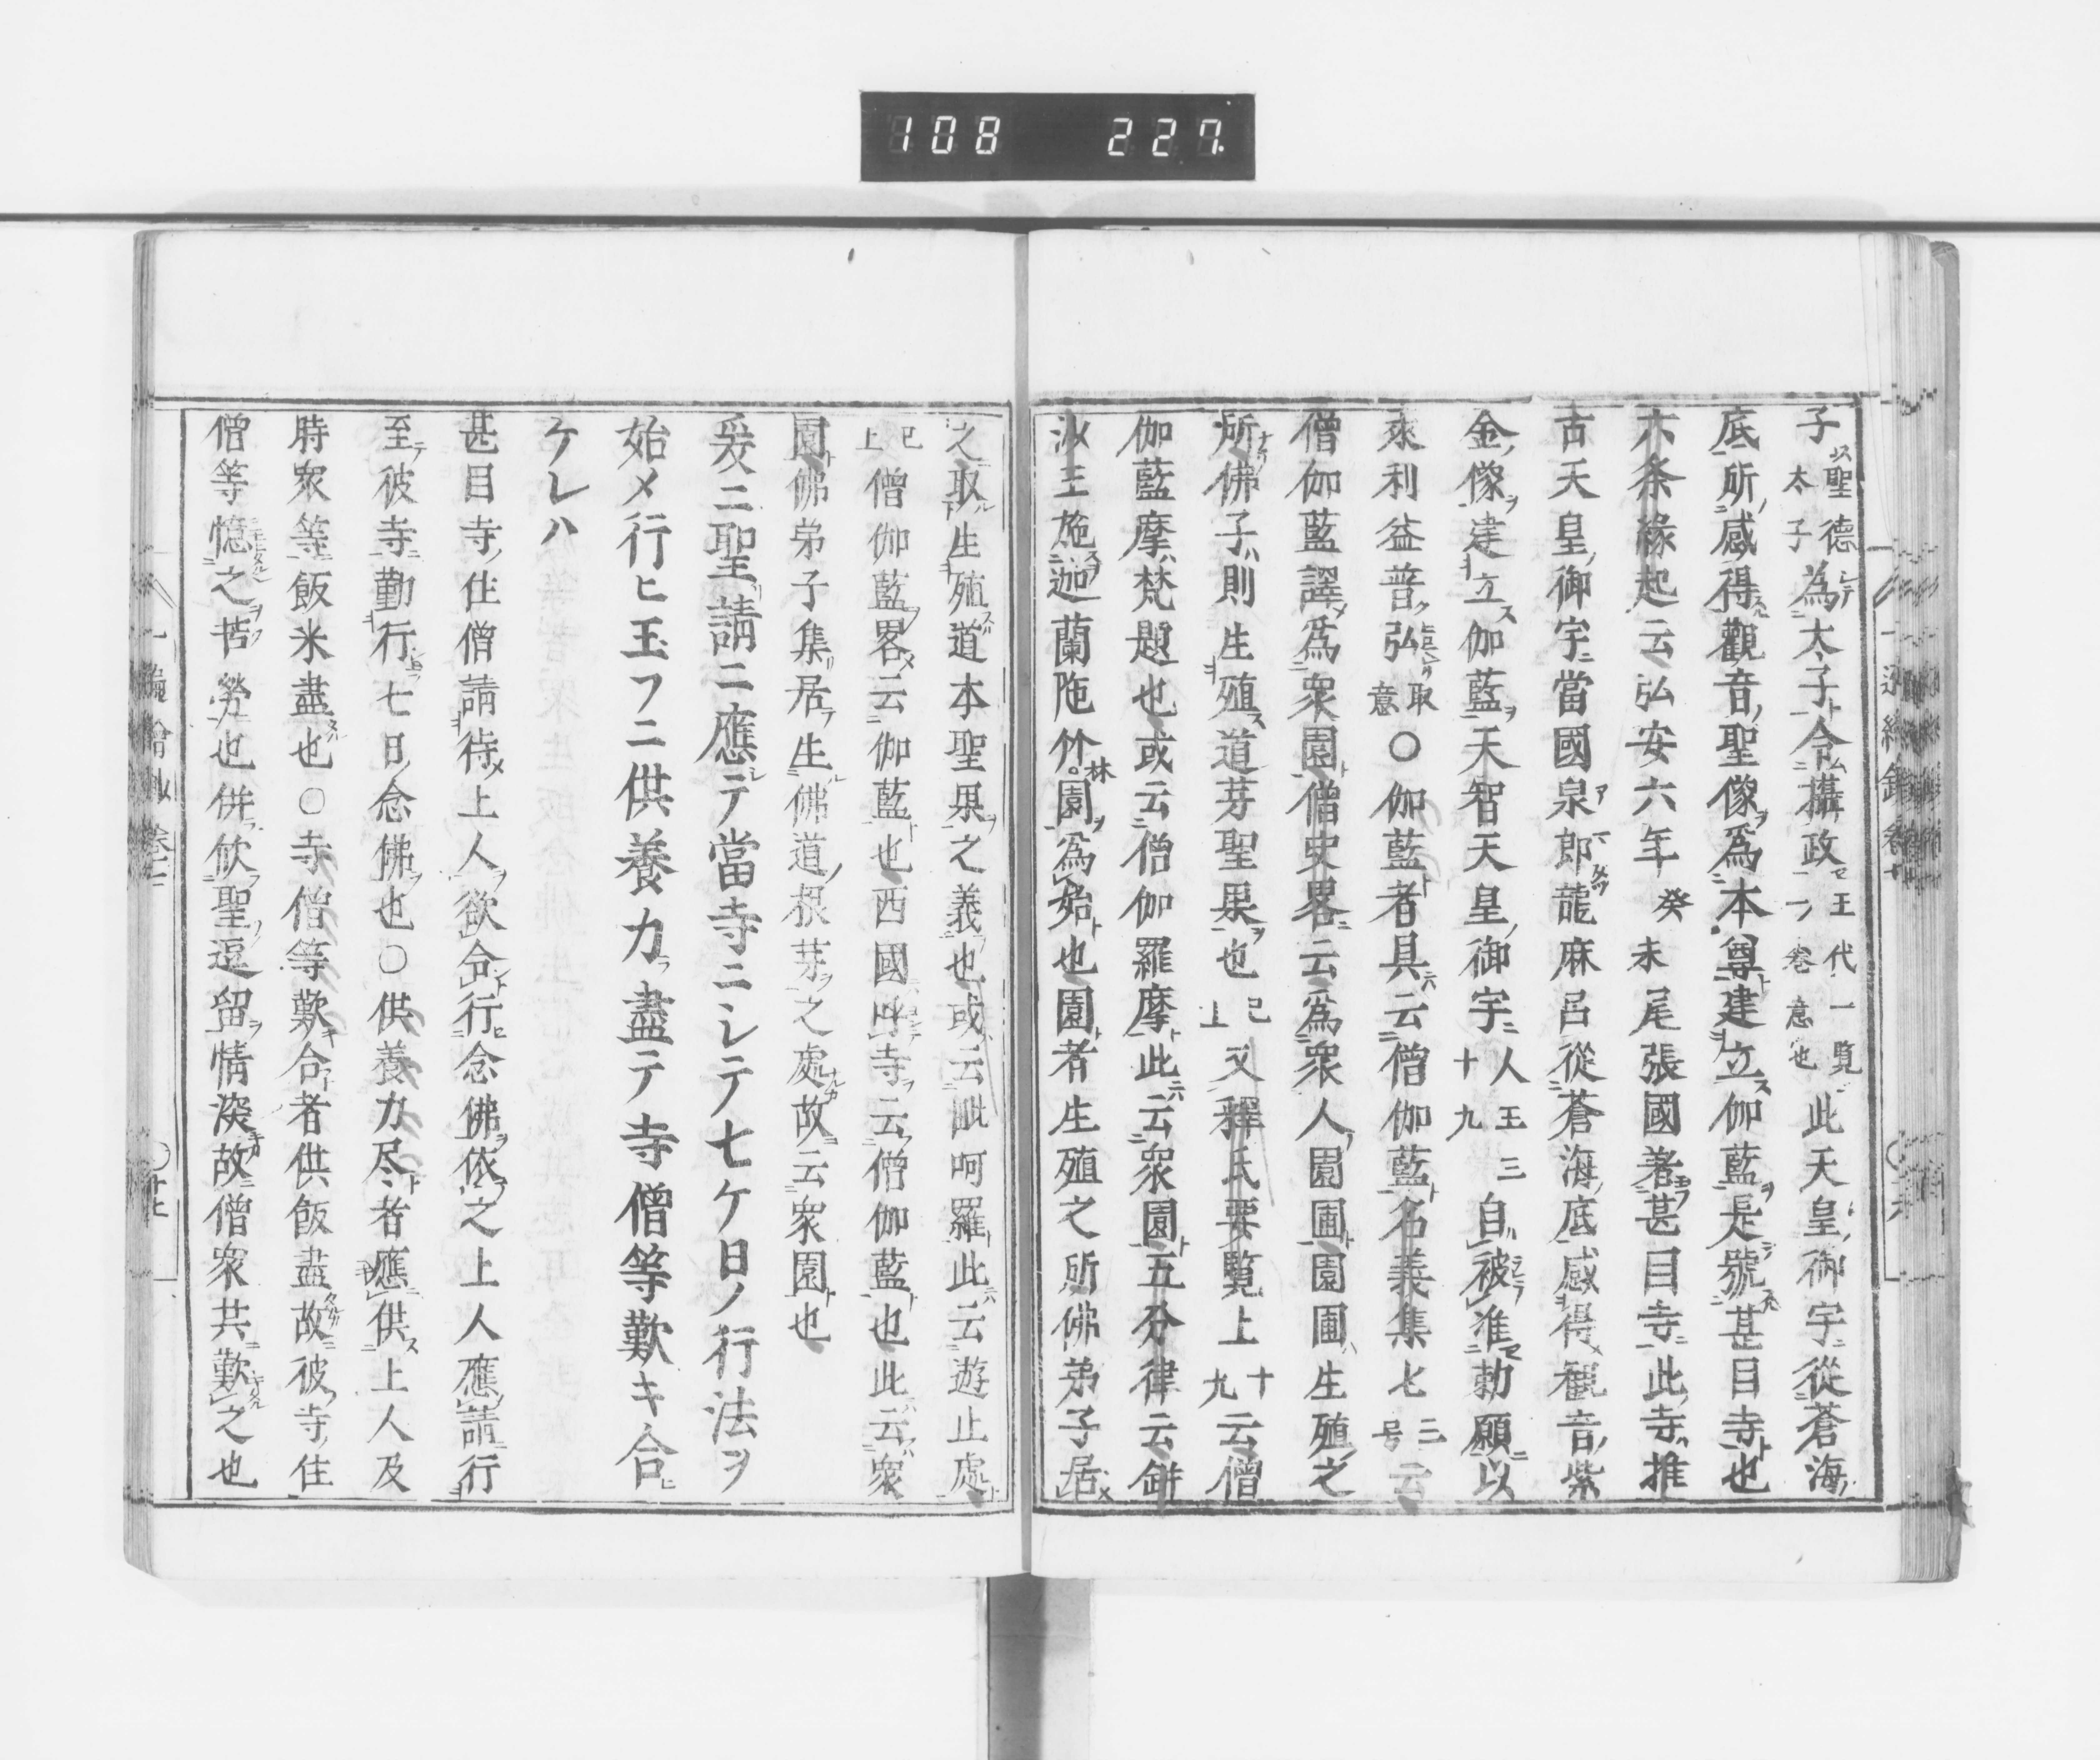 108 227
子聖德太子為太子令攝政王代一覧一巻意也此天皇御宇從蒼海
底所感得觀音聖像爲本尊建立伽藍是號甚目寺也
六条緣起云弘安六年癸未尾張國著甚目寺此寺推
古天皇御宇當國泉郎龍麻呂從蒼海底感得観音紫
金像建立伽藍天智天皇御宇人王三十九自被准勅願以
來利益普弘取意○伽藍者具云僧伽藍名義集七二号云
僧伽藍譯爲衆園僧史畧云爲衆人園圃園圃生殖之
所佛子則生殖道芽聖果也已上又釋氏要覽上十九云僧
伽藍摩梵題也或云僧伽羅摩此云衆園五分律云缾
沙王施迦蘭陁竹林園爲始也園者生殖之所佛弟子居
之取生殖道本聖果之義也或云毗呵羅此云遊止處
已上僧伽藍畧云伽藍也西國呼寺云僧伽藍也此云衆
園佛弟子集居生佛道根芽之處故云衆園也
爰ニ聖請ニ應テ當寺ニシテ七ケ日ノ行法ヲ
始メ行ヒ玉フニ供養力盡テ寺僧等歎キ合
ケレハ
甚目寺住僧請待上人欲令行念佛依之上人應請行
至彼寺勤行七日念佛也○供養力尽者應供上人及
時衆等飯米盡也○寺僧等歎合者供飯盡故彼寺住
僧等憶之苦勞也併欣聖逗留情深故僧衆共歎之也